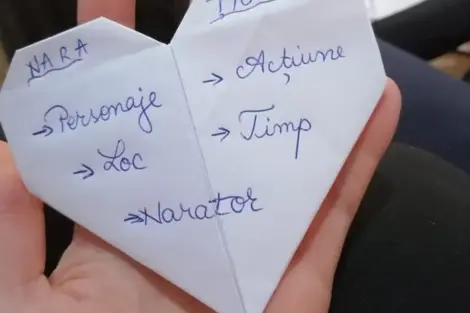 NARA
→ Personaje
→ Loc
→ Acțiune
→ Timp
→ Narator